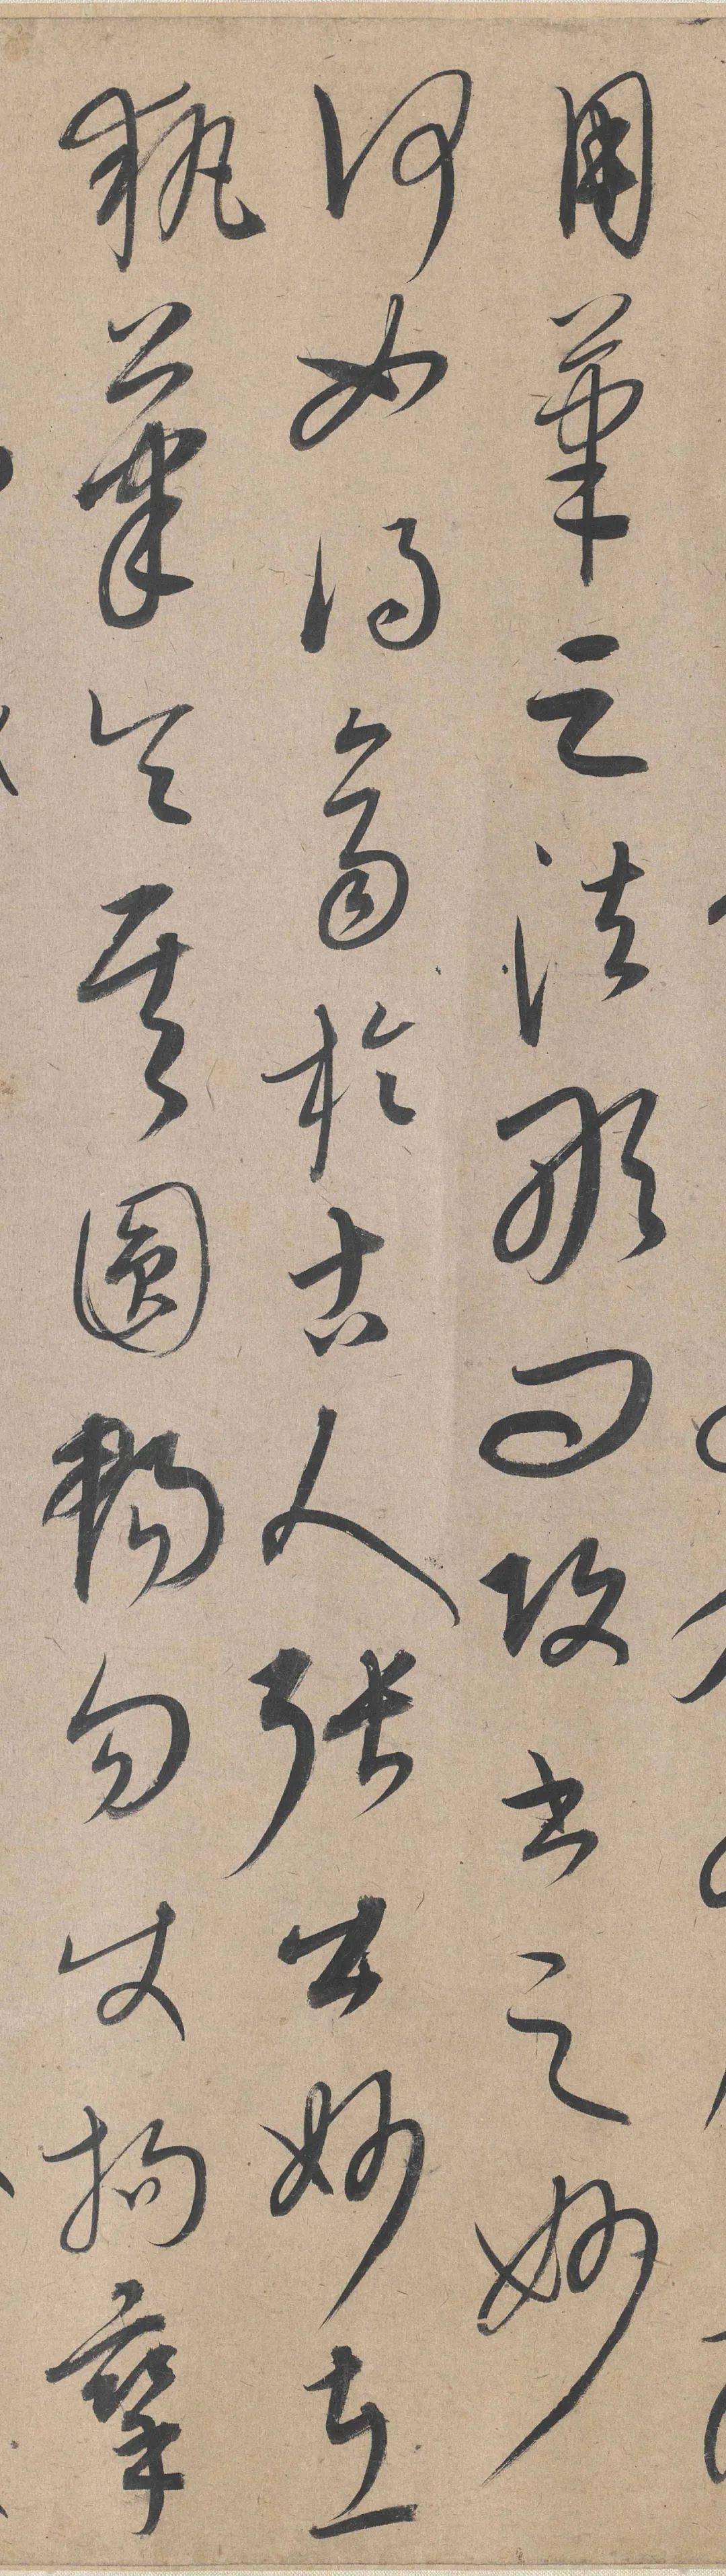 用筆之法敢問攻書之妙
何如得齊於古人張公曰妙在
執筆令其圓暢勿使拘攣